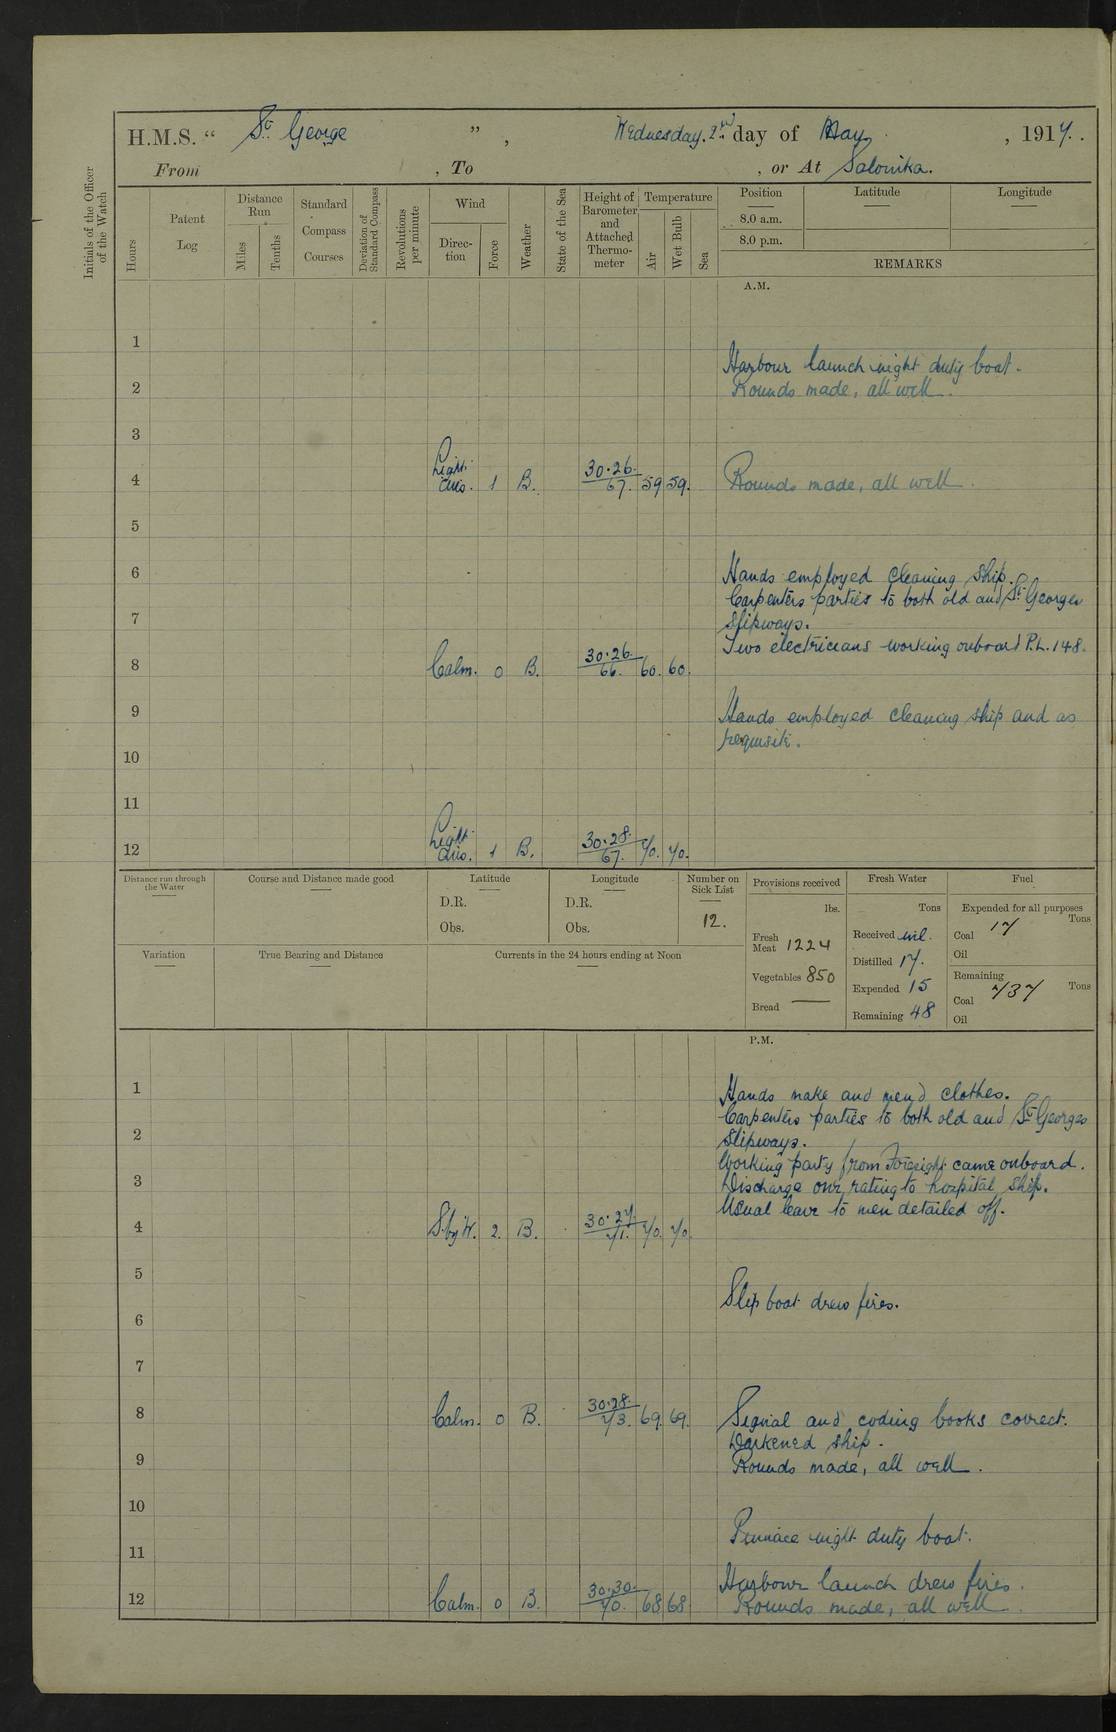 H.M.S. “ St George ” , Wednesday. 2nd day of May , 1917.
From , To , or At Salonika.
Initials of the Officer of the Watch
Hours
Patent Log
Distance Run
Miles
Tenths
Standard Compass Courses
Deviation of Standard Compass
Revolutions per minute
Wind
Direction
Force
Weather
State of the Sea
Height of Barometer and Attached Thermometer
Temperature
Air
Wet Bulb
Sea
Position
Latitude
Longitude
8.0 a.m.
8.0 p.m.
REMARKS
A.M.
1
Harbour launch night duty boat.
2 Rounds made, all well.
3
4 Light airs. 1 B. 30.26. 67. 59 59. Rounds made, all well.
5
6 Hands employed cleaning ship.
Carpenters parties to both old and St Georges
7 Slipways.
Two electricians working onboard P.L. 148.
8 Calm. 0 B. 30.26. 66. 60. 60.
9 Hands employed cleaning ship and as
requisite.
10
11
12 Light airs. 1 B. 30.28. 67. 70. 70.
Distance run through the Water
Course and Distance made good
Latitude
D.R.
Obs.
Longitude
D.R.
Obs.
Number on Sick List
12.
Provisions received
lbs.
Fresh Meat 1224
Vegetables 850
Bread —
Fresh Water
Tons
Received nil.
Distilled 17.
Expended 15
Remaining 48
Fuel
Expended for all purposes
Tons
Coal 17
Oil
Remaining
Coal 737 Tons
Oil
Variation
True Bearing and Distance
Currents in the 24 hours ending at Noon
P.M.
1 Hands make and mend clothes.
Carpenters parties to both old and St Georges
2 Slipways.
Working party from Foresight came onboard.
3 Discharge one rating to hospital ship.
Usual leave to men detailed off.
4 S.by W. 2. B. 30.27. 71. 70. 70.
5
Slip boat drew fires.
6
7
8 Calm. 0 B. 30.28. 73. 69. 69. Signal and coding books correct.
Darkened ship.
9 Rounds made, all well.
10
Pinnace night duty boat.
11
Harbour launch drew fires.
12 Calm. 0 B. 30.30. 70. 68 68 Rounds made, all well.